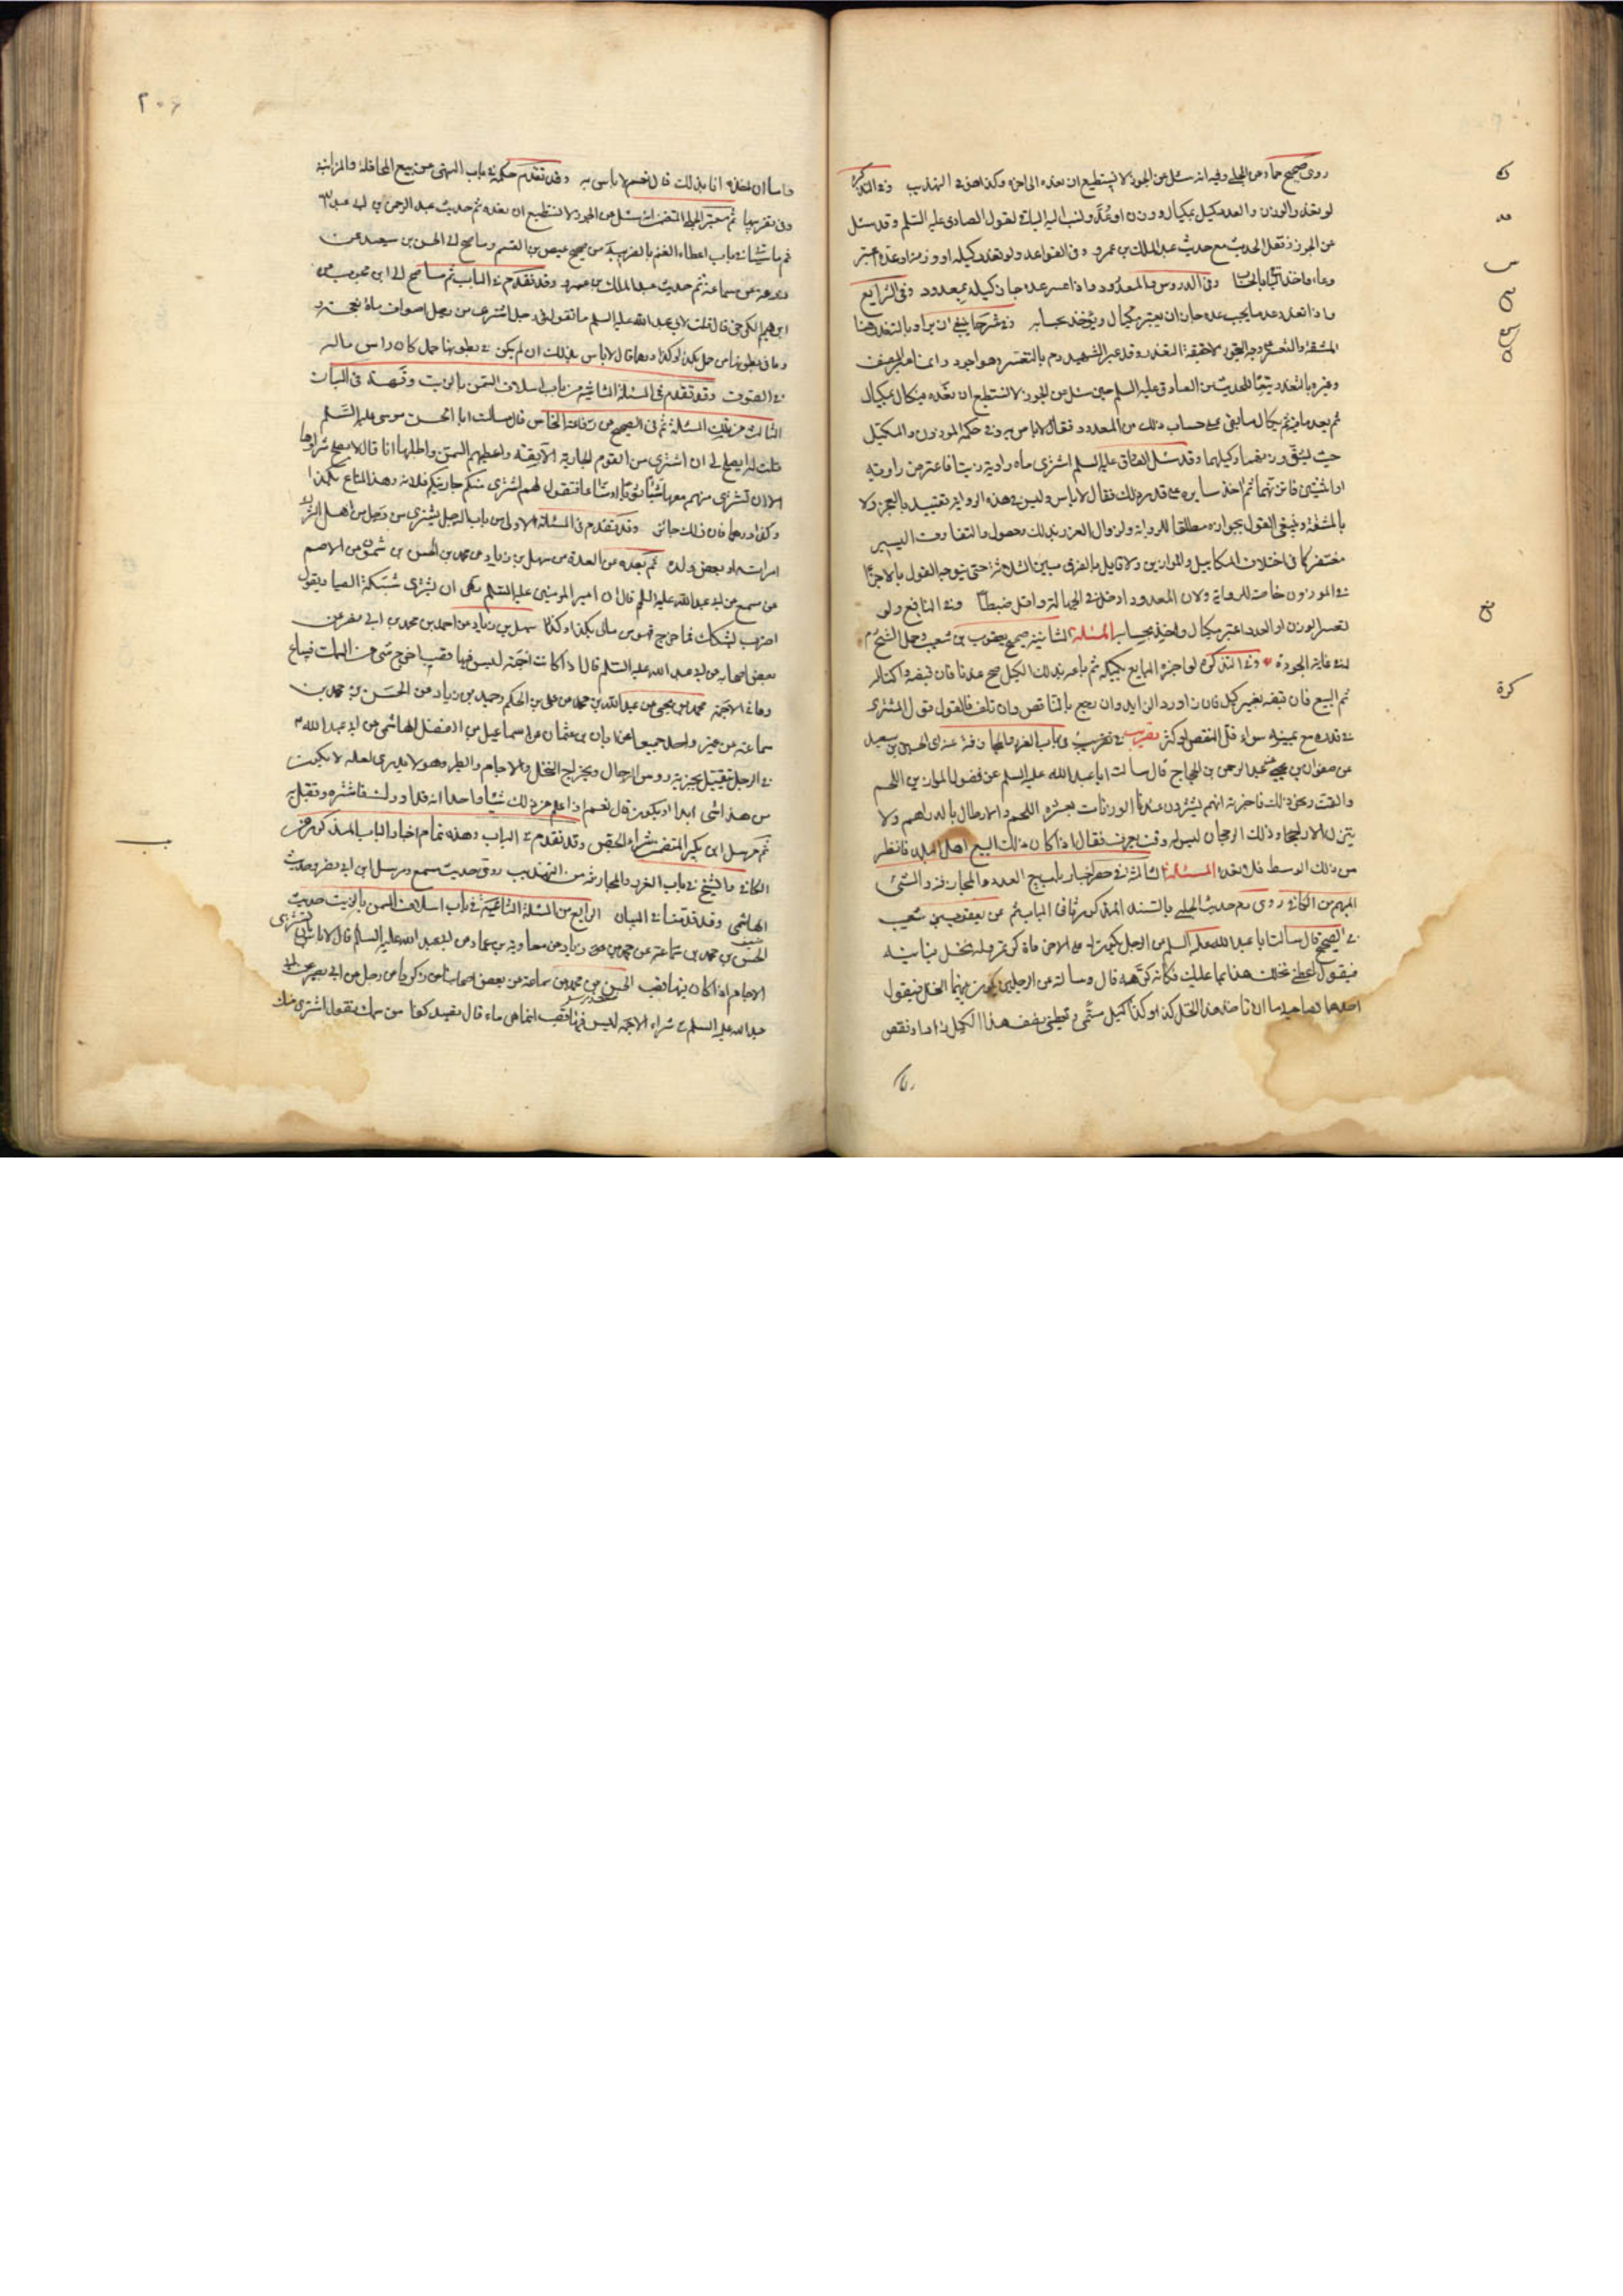 روى صحيح حماد عن الحلبي وفيه انه سئل عن الجوز لا يستطيع ان نعده الى اخره وكذا هذه في التهذيب وفي التذكرة
لو تعذر الوزن والعدد كيل بمكيال ووزن او عُدّ ونسب اليه الباقي لقول الصادق عليه السلام وقد سئل
عن الجوز ونقل الحديث مع حديث عبد الملك بن عمرو وفي القواعد ولو تعذر كيله او وزنه او عده اعتبر
وعاء واخذ الباقي بالحساب وفي الدروس والمعدود ماذا عسر عده جاز كيله بمعدود وفي الشرايع
ماذا تعذر عد ما يجب عده جاز ان يعتبر بمكيال ويؤخذ بحسابه وفي شرحها ينبغي ان يراد بالتعذر هنا
المشقة والتعسر وقد عبر الشهيد رحم بالتعسر وهو اجود وانما عبر المصنف
وغيره بالتعذر تبعا للحديث عن الصادق عليه السلم حين سئل عن الجوز لا نستطيع ان نعده فيكال بمكيال
ثم يعد ما فيه ثم يكال ما بقي على حساب ذلك من العدد فقال لا باس به وفي حكمه الموزون والمكيل
حيث يشق وزنهما وكيلهما وقد سئل الصادق عليه السلم اشترى ماة راوية زيتا فاعترض راوية
او اثنتين فاتزنهما ثم اخذ سايره على قدر ذلك فقال لا باس وليس في هذه الرواية تقييد بالعجز ولا
بالمشقة وينبغي القول بجوازه مطلقا للرواية ولزوال الغرر بذلك وحصول التفاوت اليسير
مغتفر كما في اختلاف المكاييل والموازين ولا قايل بالفرق بين الثلاثة حتى يتوجه القول بالاجزاء
في الموزون خاصة للرواية ولان المعدود ادخل في الجهالة واقل ضبطا وفي النافع ولو
تعسر الوزن او العدد اعتبر مكيال واخذ بحسابه المسئلة الثانية صحيح يعقوب بن شعيب وحمل الشيخ
لنا غاية الجودة وفي التذكرة لو اخبره البايع بكيله ثم باعه بذلك الكيل صح عندنا فان قبضه واكتاله
ثم البيع فان قبضه بغير كيل فان زاد رد الزايد وان نقص رجع بالناقص وان تلف فالقول قول المشتري
في قدره مع يمينه سواء قل النقص او كثر في باب الغرر والمجازفة عنه اي الحسين بن سعيد
عن صفوان بن يحيى عن عبد الرحمن بن الحجاج قال سالت ابا عبد الله عليه السلم عن فضول الموازين اللحم
والقت ونحو ذلك فاخبرته انهم يشترون عندنا الوزنات بعشرة اللحم والارطال بالدراهم ولا
يتزن الا راجحا وذلك الرجحان ليس له وقت يعرف فقال اذا كان ذلك البيع اهل البلد فانظر
من ذلك الوسط فلا تعده المسئلة الثالثة في حصر اخبار باب بيع العدد والمجازفة والشئ
المبهم من الكافي روى مع حديث الحلبي بالسند المذكور ثانيا في الباب ثم عن يعقوب بن شعيب
في الصحيح قال سالت ابا عبد الله عليه السلم عن الرجل يكون له على الاخر ماة كر تمر وله نخل فياتيه
فيقول اعطني نخلك هذا بما عليك فكانه كرهه قال وسالته عن الرجلين يكون بينهما النخل فيقول
احدهما لصاحبه اما ان تاخذ هذا النخل بكذا وكذا كيل مسمى وتعطيني نصف هذا الكيل زاد او نقص
واما ان اخذه انا بذلك قال نعم لا باس به وقد تقدم حكمه في باب النهي عن بيع المحاقلة والمزابنة
وفي تقريبها ثم معتبر الحلبي المتضمن انه سئل عن الجوز لا نستطيع ان نعده ثم حديث عبد الرحمن بن ابي عبد الله
ثم ما تتبينا في باب اعطاء الغنم بالضريبة من صحيح عيص بن القسم وما صح الى الحسن بن سعيد عن
زرعة عن سماعة ثم حديث عبد الملك بن عمرو وقد تقدم في الباب ثم ما صح الى ابن محبوب عن
ابرهيم الكرخي قال قلت لابي عبد الله عليه السلم ما تقول في رجل اشترى من رجل اصواف ماة نعجة
وما في بطونها من حمل بكذا وكذا درهما قال لا باس بذلك ان لم يكن في بطونها حمل كان راس ماله
في الصوف وقد تقدم في المسئلة الثانية من باب اسلاف السمن بالزيت وقسمه في البيان
الثالث من تلك المسئلة ثم في الصحيح عن رفاعة النخاس قال سالت ابا الحسن موسى عليه السلم
قلت له ايصلح لي ان اشتري من القوم الجارية الابقة واعطيهم الثمن واطلبها انا قال لا يصلح شراؤها
الا ان تشتري منهم معها شيئا ثوبا او متاعا فتقول لهم اشتري منكم جاريتكم فلانة وهذا المتاع بكذا
وكذا درهما فان ذلك جائز وقد تقدم في المسئلة الاولى من باب الرجل يشتري من رجل من اهل الشرك
امراته او بعض ولده ثم بعده من العدة عن سهل بن زياد عن محمد بن الحسن بن شمون عن الاصم
عن مسمع عن ابي عبد الله عليه السلم قال ان امير المومنين عليه السلم نهى ان يشترى شبكة الصياد يقول
اضرب بشبكتك فما خرج فهو من مالي بكذا وكذا سهل بن زياد عن احمد بن محمد بن ابي نصر عن
بعض اصحابه عن ابي عبد الله عليه السلم قال اذا كانت اجمة ليس فيها قصب اخرج شئ من السمك فيباع
وما في الاجمة محمد بن يحيى عن عبد الله بن محمد عن علي بن الحكم وحميد بن زياد عن الحسن بن محمد بن
سماعة عن غير واحد جميعا عن ابان بن عثمان عن اسماعيل بن الفضل الهاشمي عن ابي عبد الله
في الرجل يتقبل بجزية روس الرجال وبخراج النخل والاجام والطير وهو لا يدري لعله لا يكون
من هذا شئ ابدا او يكون قال نعم اذا علم من ذلك شيئا واحدا انه قد ادرك فاشتره وتقبل به
ثم مرسل ابن بكير المتضمن شراء الجص وقد تقدم في الباب وهذه تمام اخبار الباب المذكور من
الكافي والشيخ في باب الغرر والمجازفة من التهذيب روى حديث مسمع ومرسل ابن ابي نصر وحديث
الهاشمي وقد قدمنا في البيان الرابع من المسئلة الثانية في باب اسلاف السمن بالزيت حديث
الحسن بن محمد بن سماعة عن محمد بن زياد عن معاوية بن عمار عن ابي عبد الله عليه السلم قال لا باس بان يشترى
الاجام اذا كان فيها قصب الحسن بن محمد بن سماعة عن بعض اصحابنا عن زكريا عن رجل عن ابي بصير عن ابي
عبد الله عليه السلم في شراء الاجمة ليس فيها قصب انما هي ماء قال تصيد كفا من سمك تقول اشتري منك